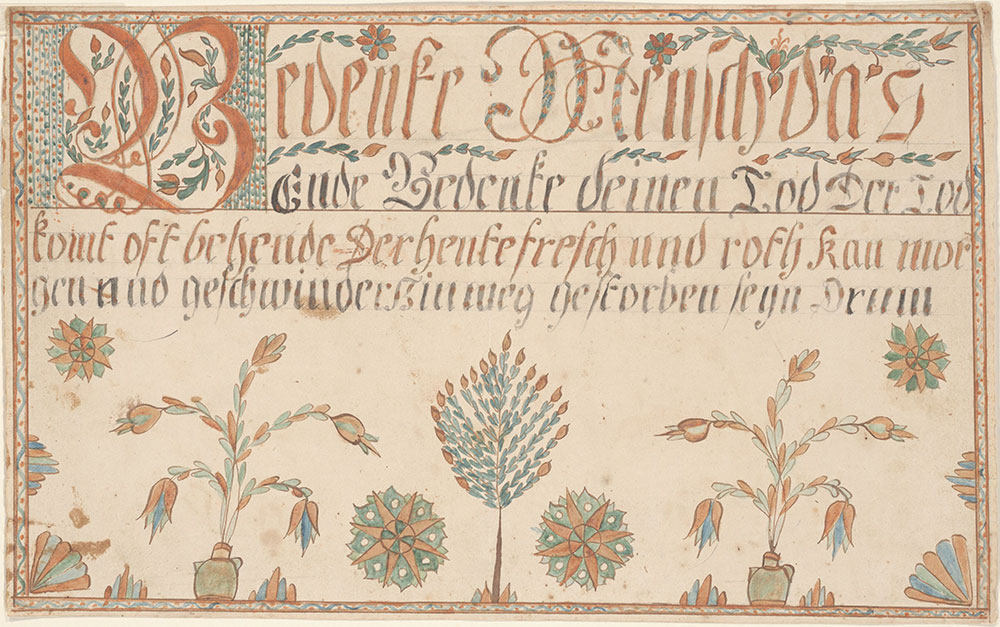 Bedenke Mensch das
Ende Bedenke deinen Tod Der Tod
komt oft behende Der heute fresch und roth kan mor
gen und geschwinder Hinweg gestorben seyn Drum